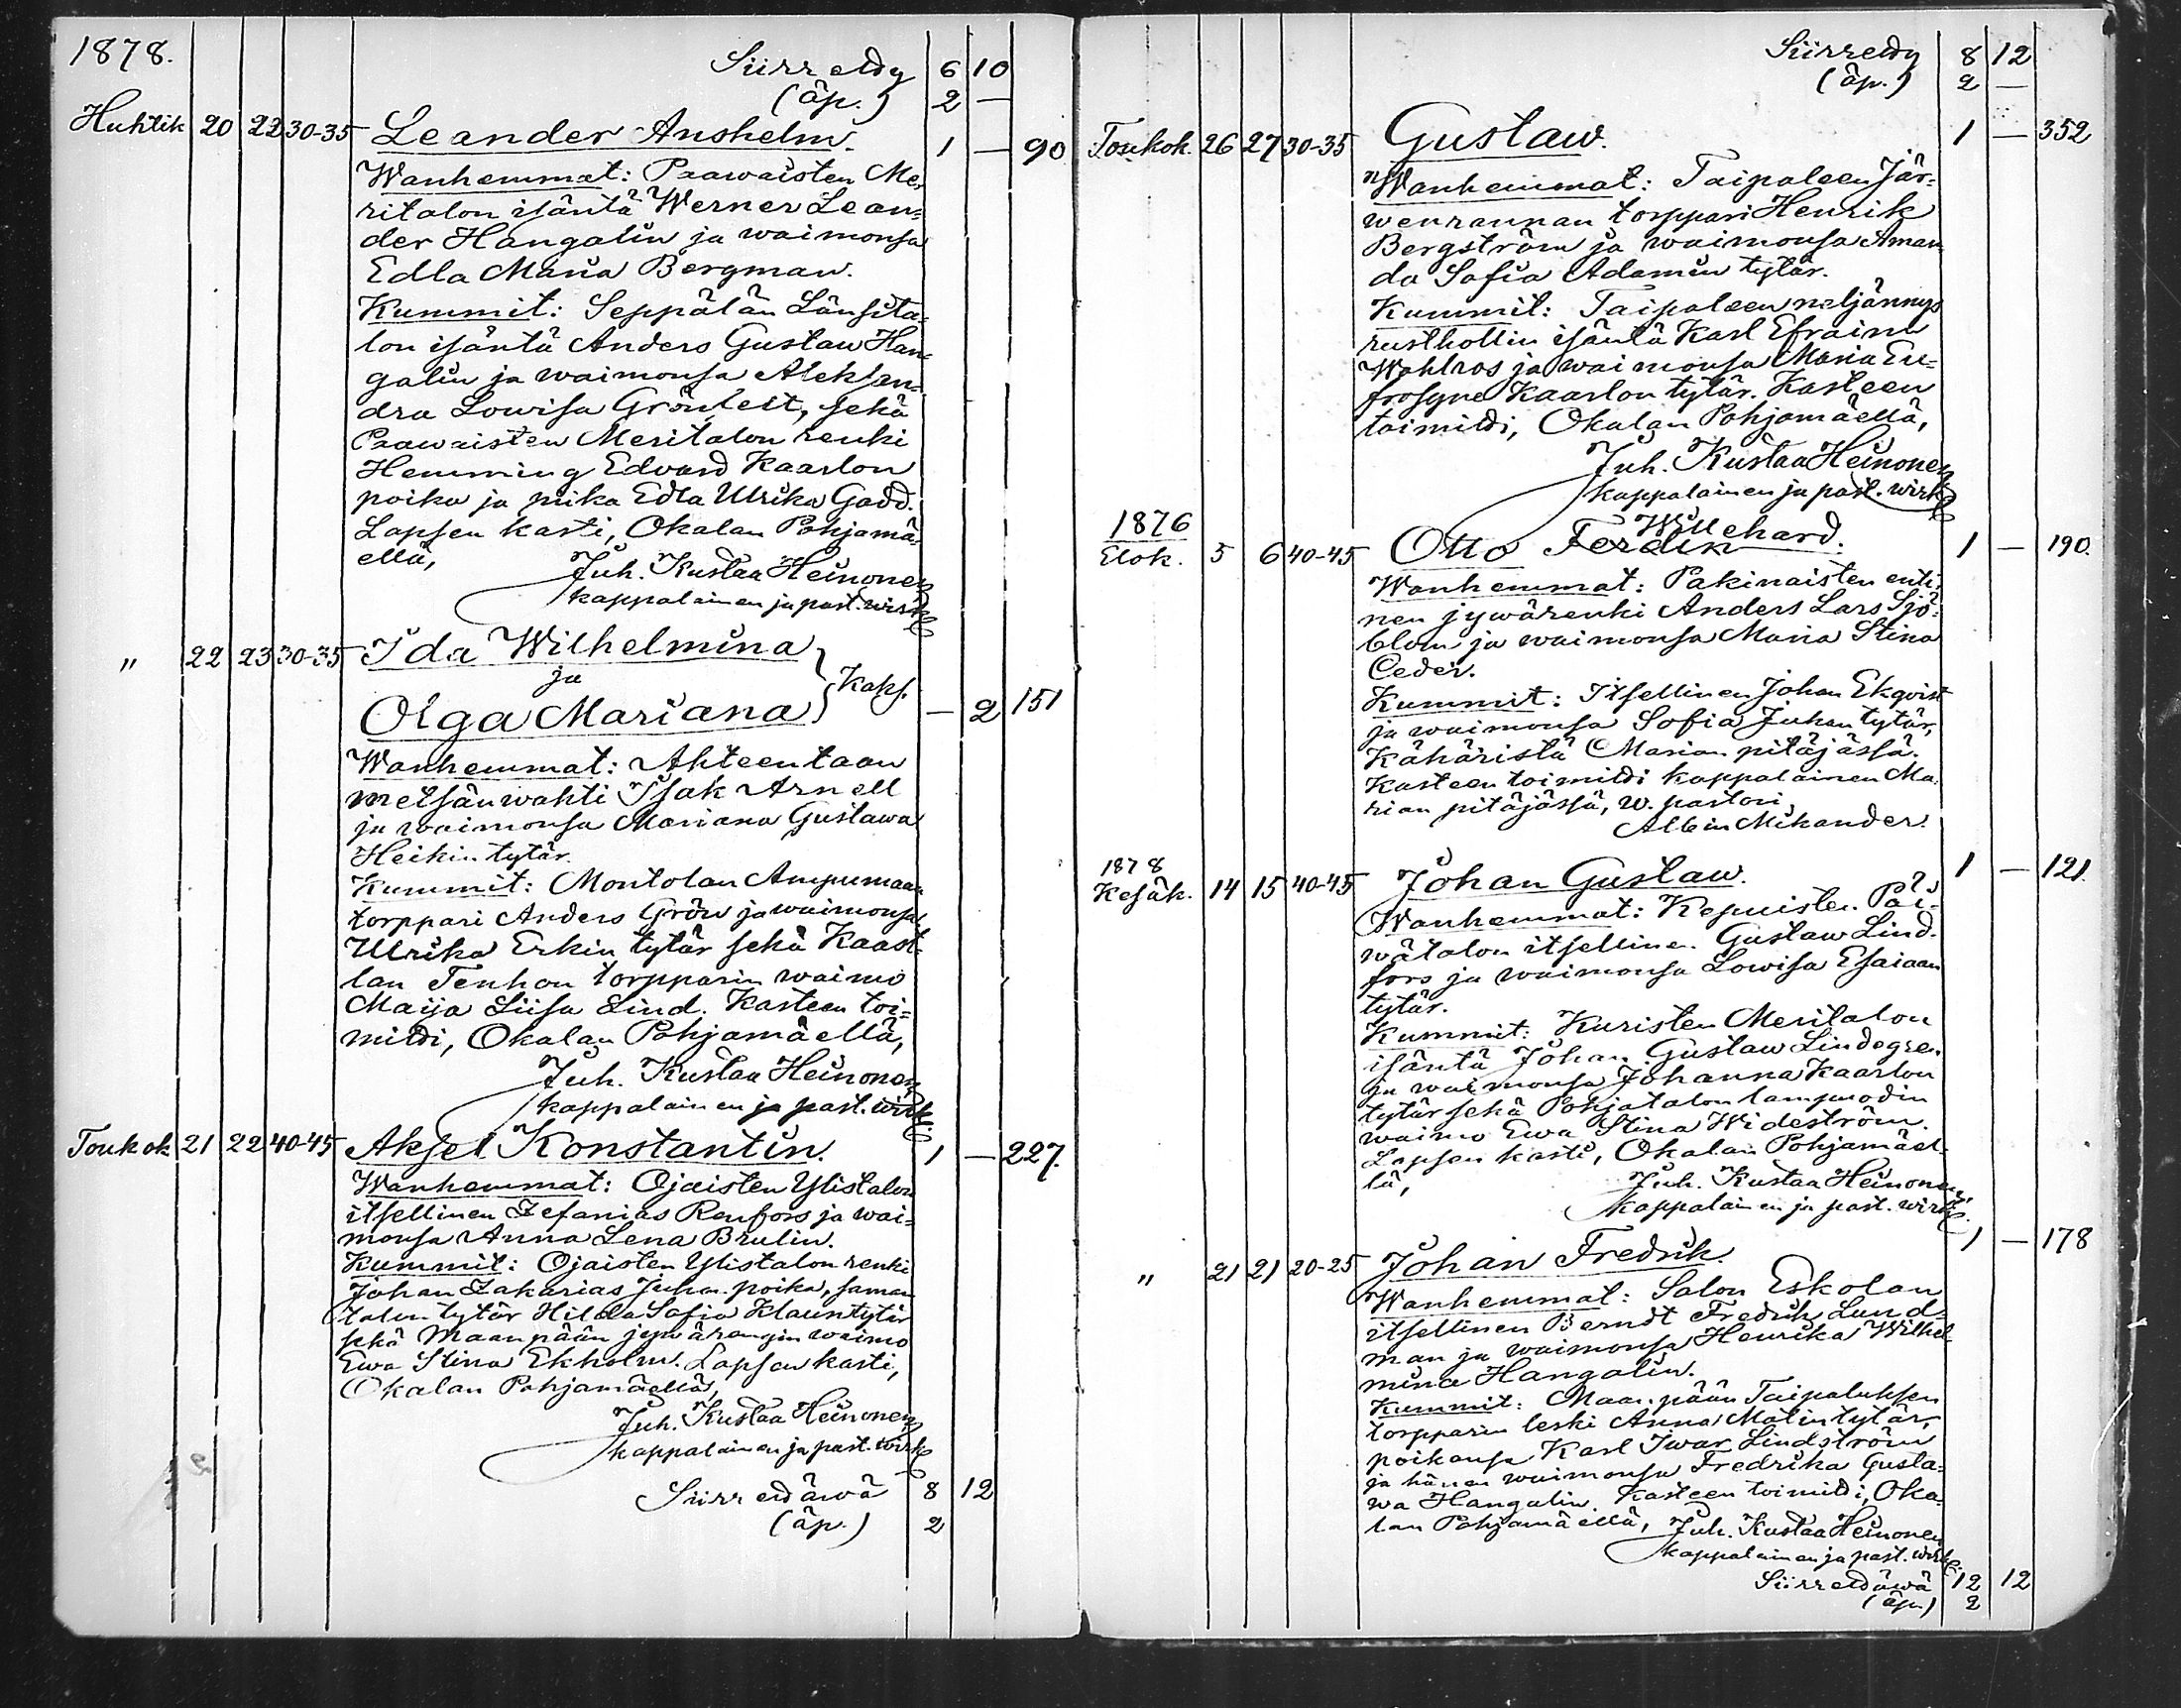 1878.
Siirretty 6 10
(äp.) 2 —
Huhtik 20 22 30-35 Leander Anshelm. 1 — 90
Wanhemmat: Paawaisten Me-
ritalon isäntä Werner Lean=
der Hangalin ja waimonsa
Edla Maria Bergman.
Kummit: Seppälän Länsita-
lon isäntä Anders Gustaw Han-
galin ja waimonsa Aleksan-
dra Lowisa Grönleit, sekä
Paawaisten Meritalon renki
Hemming Edvard Kaarlon
poika ja piika Edla Ulrika Gadd.
Lapsen kasti, Okalan Pohjamä-
ellä,
Juh. Kustaa Heinonen
kappalainen ja past. wirk
" 22 23 30-35 Ida Wilhelmina
ja Kaks.
Olga Mariana — 2 151
Wanhemmat: Ahteentaan
metsänwahti Isak Arnell
ja waimonsa Mariana Gustawa
Heikin tytär.
Kummit: Montolan Ampumaan
torppari Anders Grön ja waimonsa
Ulrika Erkin tytär sekä Kaast-
lan Tenhon torpparin waimo
Maija Liisa Lind. Kasteen toi=
mitti, Okalan Pohjamäellä,
Juh. Kustaa Heinonen
kappalainen ja past. wirk.
Toukok 21 22 40-45 Aksel Konstantin. 1 — 227.
Wanhemmat: Ojaisten Ylistalon
itsellinen Zefanias Renfors ja wai=
monsa Anna Lena Brulin.
Kummit: Ojaisten Ylistalon renki
Johan Zakarias Juhan poika, saman
talon tytär Hilda Sofia Klauntytär
sekä Maanpään jywärengin waimo
Ewa Stina Ekholm. Lapsen kasti,
Okalan Pohjamäellä,
Juh. Kustaa Heinonen
kappalainen ja past. wirk
Siirrettäwä 8 12
(äp.) 2
Siirretty 8 12
(äp.) 2 —
Toukok. 26 27 30-35 Gustaw. 1 — 352
Wanhemmat: Taipaleen Jär=
wenrannan torppari Henrik
Bergström ja waimonsa Aman-
da Sofia Adamin tytär.
Kummit: Taipaleen neljännys
rusthollin isäntä Karl Efraim
Wahlros ja waimonsa Maria Eu-
frosyne Kaarlon tytär. Kasteen
toimitti, Okalan Pohjamäellä,
Juh. Kustaa Heinonen
kappalainen ja past. wirk
1876
Willehard.
Elok. 5 6 40-45 Otto Ferdin 1 — 190.
Wanhemmat: Pakinaisten enti-
nen jywärenki Anders Lars Sjö-
blom ja waimonsa Maria Stina
Ceder.
Kummit: Itsellinen Johan Ekqvist
ja waimonsa Sofia Juhan tytär,
Kähäristä Marian pitäjässä.
Kasteen toimitti kappalainen Ma-
rian pitäjässä, w. pastori,
Albin Mikander.
1878
Kesäk. 14 15 40-45 Johan Gustaw. 1 — 121.
Wanhemmat: Päi-
wätalon itsellinen Gustaw Lind-
fors ja waimonsa Lowisa Esaiaan
tytär.
Kummit: Kuristen Meritalon
isäntä Johan Gustaw Lindegren
ja waimonsa Johanna Kaarlon
tytär sekä Pohjatalon lampuodin
waimo Ewa Stina Wideström.
Lapsen kasti, Okalan Pohjamäel-
lä,
Juh. Kustaa Heinonen,
kappalainen ja past. wirk.
" 21 21 20-25 Johan Fredrik. 1 — 178
Wanhemmat: Salon Eskolan
itsellinen Berndt Fredrik Lund-
man ja waimonsa Henrika Wilhel-
mina Hangalin.
Kummit: Maanpään Taipaluksen
torpparin leski Anna Matin tytär,
poikansa Karl Iwar Lindström
ja hänen waimonsa Fredrika Gusta-
wa Hangalin. Kasteen toimitti, Oka-
lan Pohjamäellä, Juh. Kustaa Heinonen
kappalainen ja past. wirk.
Siirrettäwä 12 12
(äp.) 2